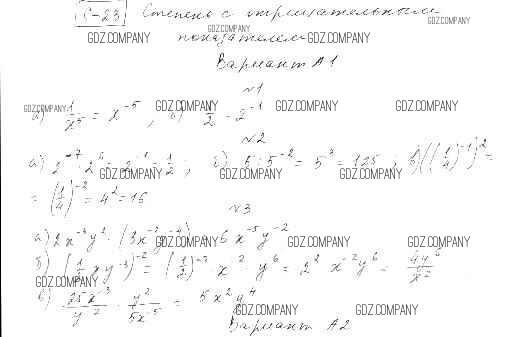 С-23 Степень с отрицательным
GDZ.COMPANY
GDZ.COMPANY показателем GDZ.COMPANY
Вариант А1
№1
GDZ.COMPANY GDZ.COMPANY GDZ.COMPANY GDZ.COMPANY
а) 1/x^5 = x^-5, б) 1/2 = 2^-1
№2
а) 2^-7 · 2^6 = 2^-1 = 1/2; б) 5 : 5^-2 = 5^3 = 125, в) ((1/4)^-1)^2 =
GDZ.COMPANY GDZ.COMPANY GDZ.COMPANY
= (1/4)^-2 = 4^2 = 16
№3
а) 2x^-3y^2 · (3x^-2y^-4) = 6x^-5y^-2
GDZ.COMPANY GDZ.COMPANY GDZ.COMPANY
б) (1/2 xy^-3)^-2 = (1/2)^-2 x^-2 y^6 = 2^2 x^-2 y^6 = 4y^6/x^2
GDZ.COMPANY
в) 25x^-3/y^-2 · y^2/5x^-5 = 5x^2y^4
GDZ.COMPANY GDZ.COMPANY
Вариант А2